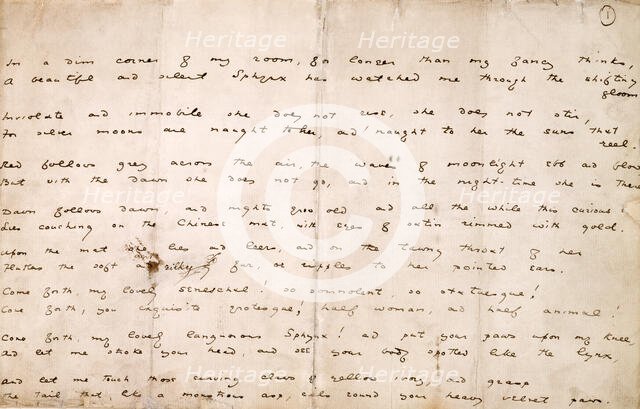 1
In a dim corner of my room, for longer than my fancy thinks,
A beautiful and silent Sphynx has watched me through the shifting
gloom
Inviolate and immobile she does not rise, she does not stir,
For silver moons are naught to her, and naught to her the suns that
reel.
Red follows grey across the air, the waves of moonlight ebb and flow
But with the Dawn she does not go, and in the night-time she is there
Dawn follows Dawn, and nights grow old and all the while this curious
Lies couching on the Chinese mat, with eyes of satin rimmed with gold.
Upon the mat she lies and leers, and on the tawny throat of her
Flutters the soft and silky fur, or ripples to her pointed ears.
Come forth, my lovely seneschal, so somnolent, so statuesque!
Come forth, you exquisite grotesque! half woman, and half animal!
Come forth, my lovely languorous Sphynx! and put your paws upon my knee,
And let me stroke your head, and see your body spotted like the Lynx,
And let me touch those curving claws of yellow ivory and grasp
The Tail that like a monstrous asp, coils round your heavy velvet paws.
Heritage
Heritage
Heritage
Heritage
Heritage
Heritage
Heritage
Images
Images
Images
C